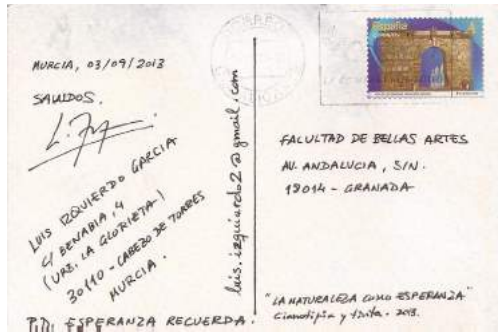 MURCIA, 03/09/2013
SALUDOS.
LUIS IZQUIERDO GARCIA
C/ BENABIA, 4
(URB. LA GLORIETA)
30110 - CABEZO DE TORRES
MURCIA.
P.D: ESPERANZA RECUERDA.
luis.izquierdo2@gmail.com
España
FACULTAD DE BELLAS ARTES
AV. ANDALUCIA, S/N.
18014 - GRANADA
"LA NATURALEZA COMO ESPERANZA"
Cianotipia y 2013.